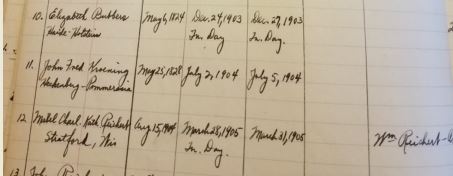 10. Elizabeth Bubbers May 6, 1824 Dec. 24, 1903 Dec. 27, 1903
Holstein In. Day In. Day.
11. John Fred Kroening May 25, 1828 July 2, 1904 July 5, 1904
Pommerania
12. Mabel Charl. Kath Reichert Aug. 15, 1904 March 28, 1905 March 31, 1905 Wm Reichert
Stratford, Wis In. Day.
13